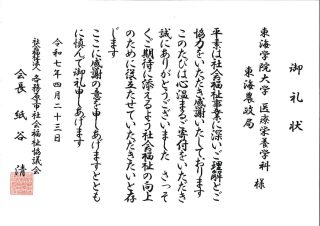 御礼状
東海学院大学 医療栄養学科
東海農政局 様
平素は社会福祉事業に深いご理解とご
協力をいただき感謝いたしております
このたびは心温まるご寄付をいただき
誠にありがとうございました さっそ
くご期待に添えるよう社会福祉の向上
のために役立たせていただきたいと存
じます
ここに感謝の意を申しあげますととも
に慎んで御礼申しあげます
令和七年四月二十三日
社会福祉法人 各務原市社会福祉協議会
会長 紙谷 清